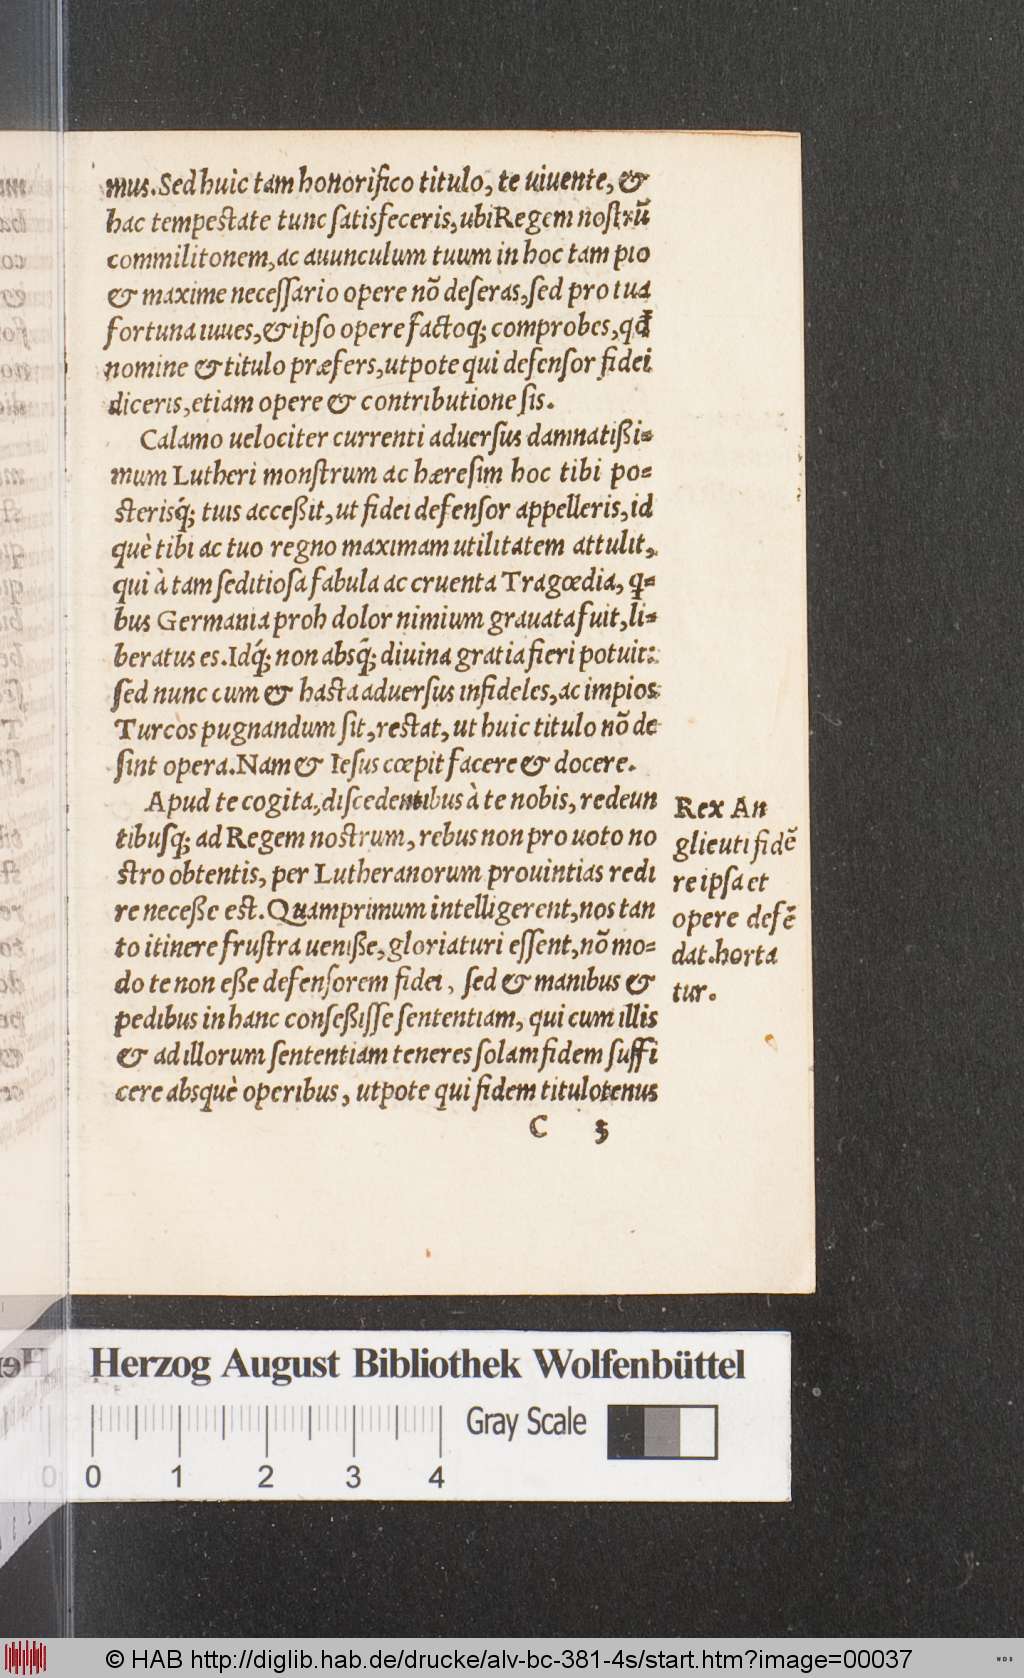 mus. Sed huic tam honorifico titulo, te uiuente, &
hac tempestate tunc satisfeceris, ubi Regem nostrũ
commilitonem, ac auunculum tuum in hoc tam pio
& maxime necessario opere nõ deseras, sed pro tua
fortuna iuues, & ipso opere factoq; comprobes, qđ
nomine & titulo præfers, utpote qui defensor fidei
diceris, etiam opere & contributione sis.
Calamo uelociter currenti aduersus damnatißi=
mum Lutheri monstrum ac hæresim hoc tibi po=
sterisq́; tuis acceßit, ut fidei defensor appelleris, id
què tibi ac tuo regno maximam utilitatem attulit,
qui à tam seditiosa fabula ac cruenta Tragœdia, q̃=
bus Germania proh dolor nimium grauata fuit, li=
beratus es. Idq́; non absq́; diuina gratia fieri potuit:
sed nunc cum & hasta aduersus infideles, ac impios
Turcos pugnandum sit, restat, ut huic titulo nõ de
sint opera. Nam & Iesus cœpit facere & docere.
Apud te cogita, discedentibus à te nobis, redeun
tibusq; ad Regem nostrum, rebus non pro uoto no
stro obtentis, per Lutheranorum prouintias redi
re neceße est. Quamprimum intelligerent, nos tan
to itinere frustra ueniße, gloriaturi essent, nõ mo=
do te non eße defensorem fidei, sed & manibus &
pedibus in hanc conseßisse sententiam, qui cum illis
& ad illorum sententiam teneres solam fidem suffi
cere absquè operibus, utpote qui fidem titulotenus
C 3
Rex An
glie uti fidẽ
re ipsa et
opere defẽ
dat. horta
tur.
Herzog August Bibliothek Wolfenbüttel
Gray Scale
0 1 2 3 4
© HAB http://diglib.hab.de/drucke/alv-bc-381-4s/start.htm?image=00037